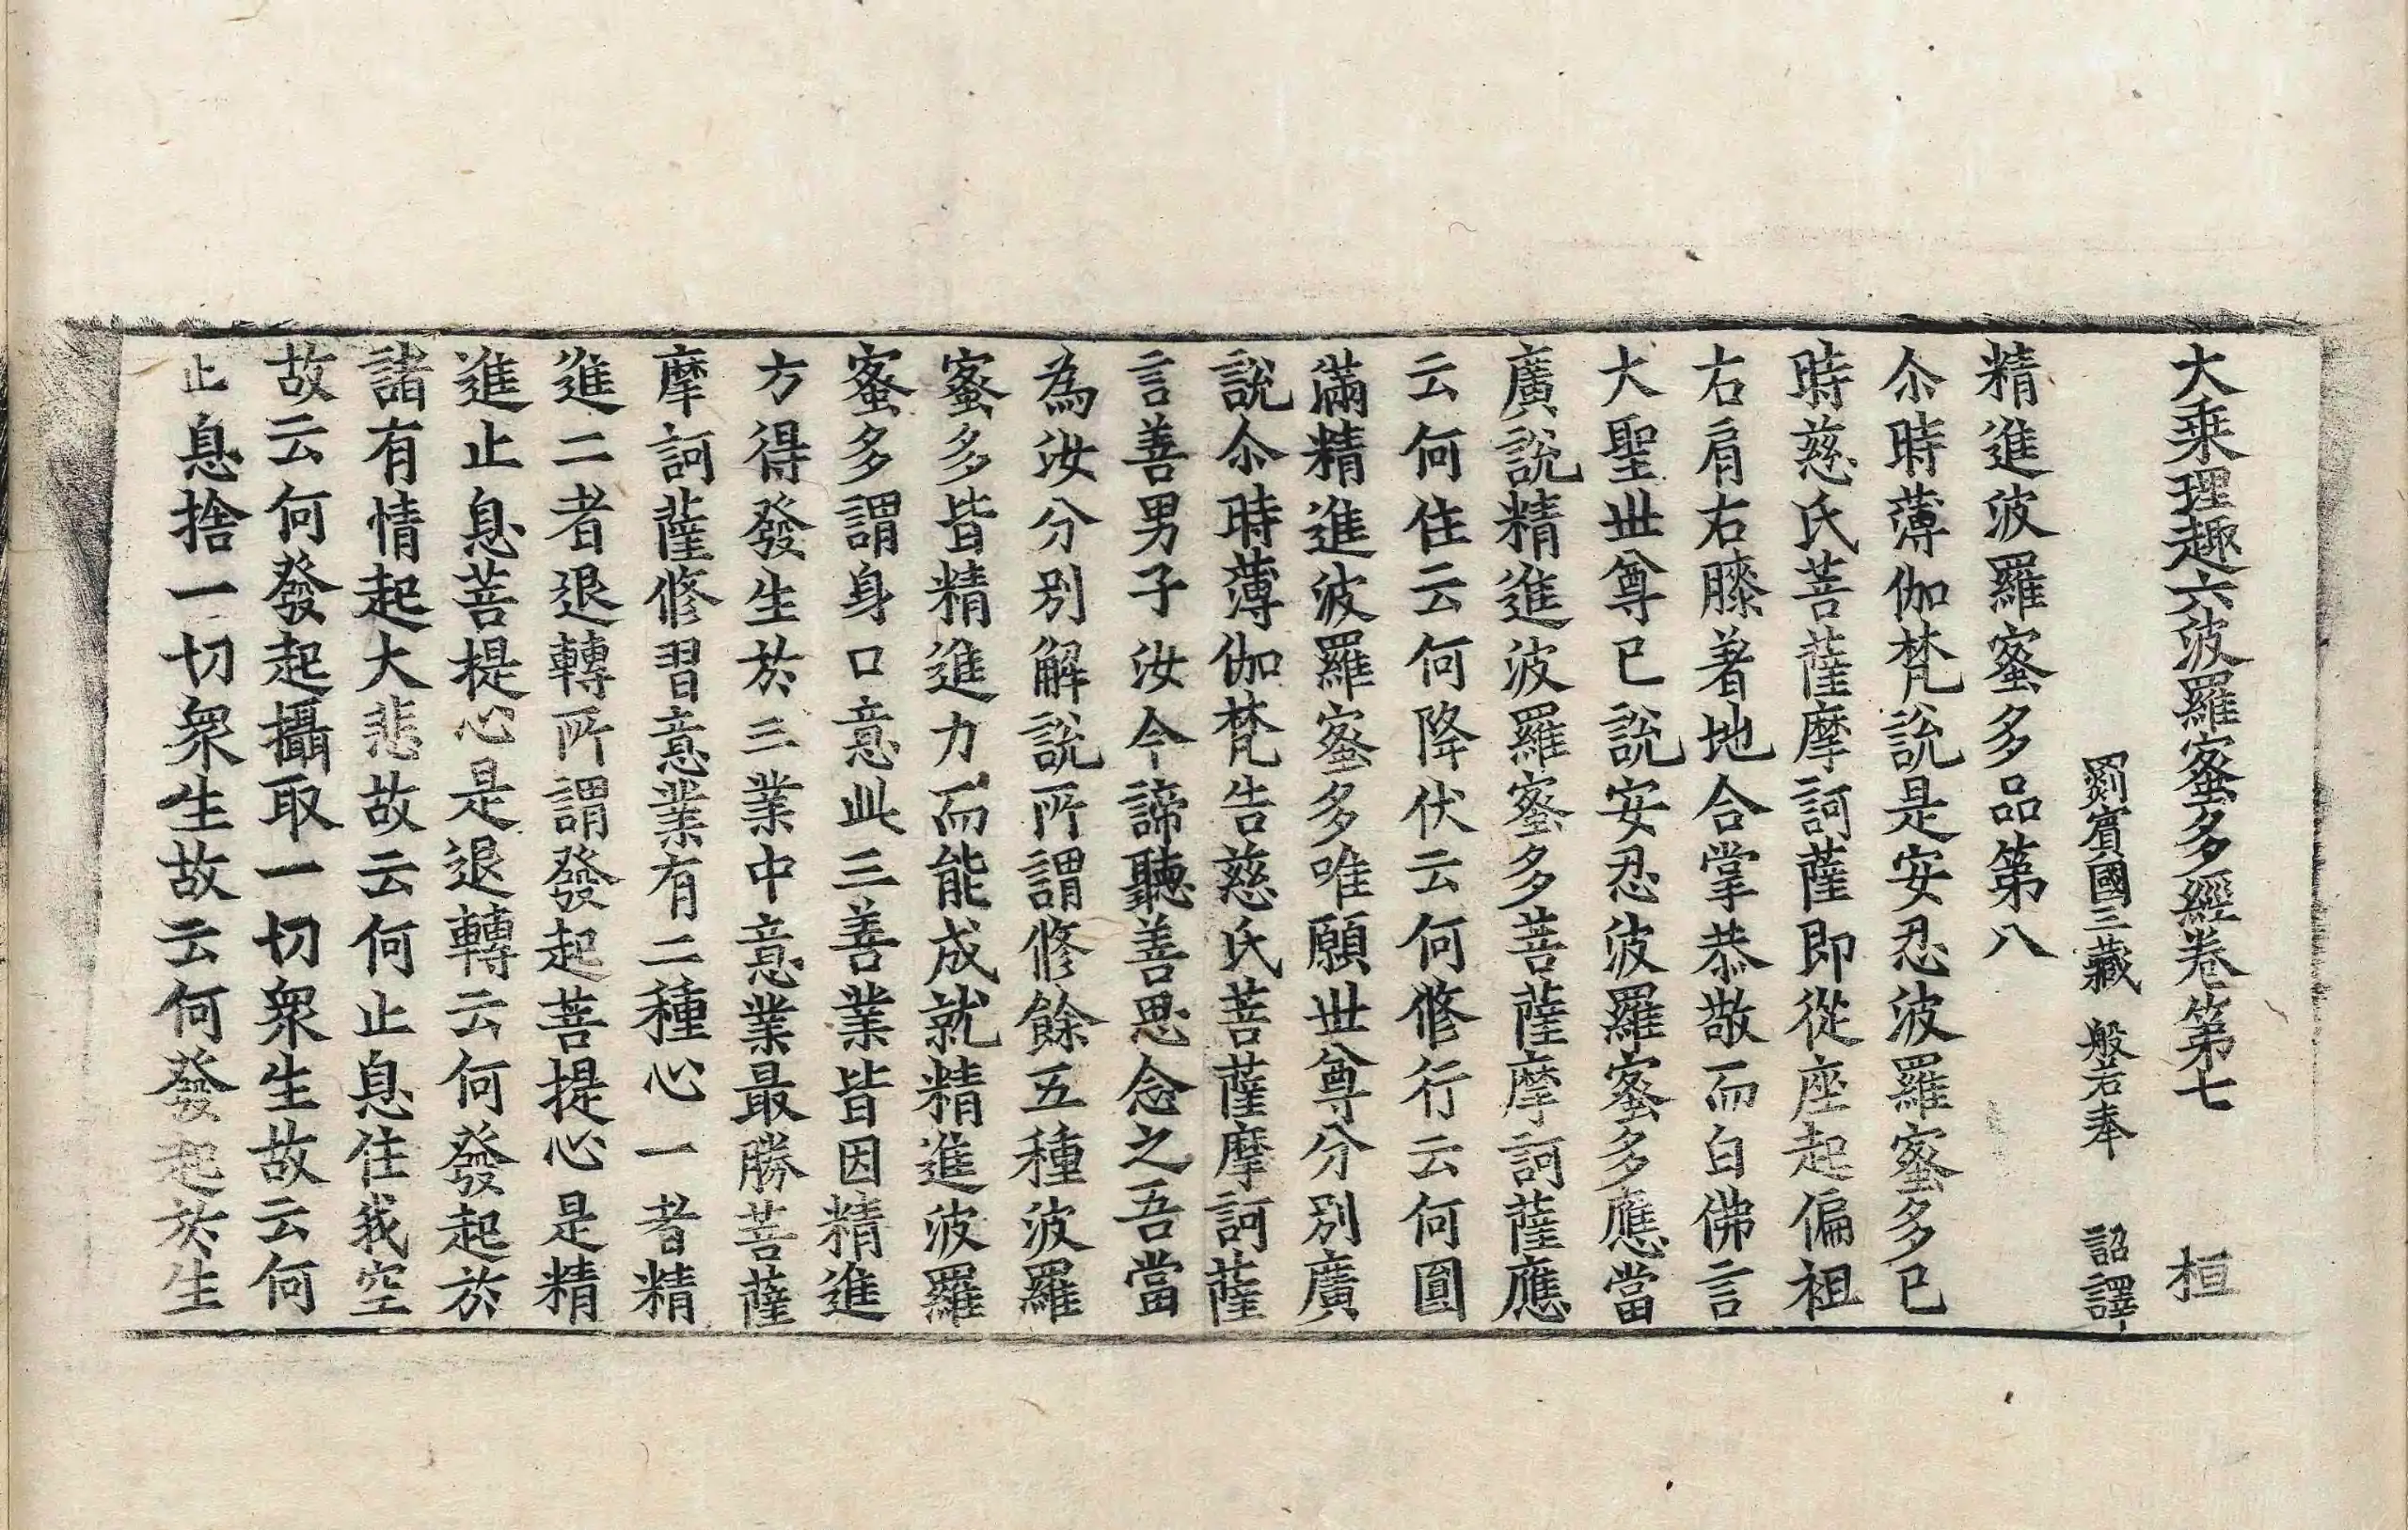 大乘理趣六波羅蜜多經卷第七　桓
罽賓國三藏　般若奉　詔譯
精進波羅蜜多品第八
尒時薄伽梵說是安忍波羅蜜多已
時慈氏菩薩摩訶薩即從座起偏袒
右肩右膝著地合掌恭敬而白佛言
大聖世尊已說安忍波羅蜜多應當
廣說精進波羅蜜多菩薩摩訶薩應
云何住云何降伏云何修行云何圓
滿精進波羅蜜多唯願世尊分別廣
說尒時薄伽梵告慈氏菩薩摩訶薩
言善男子汝今諦聽善思念之吾當
為汝分別解說所謂修餘五種波羅
蜜多皆精進力而能成就精進波羅
蜜多謂身口意此三善業皆因精進
方得發生於三業中意業最勝菩薩
摩訶薩修習意業有二種心一者精
進二者退轉所謂發起菩提心是精
進止息菩提心是退轉云何發起於
諸有情起大悲故云何止息住我空
故云何發起攝取一切眾生故云何
止息捨一切眾生故云何發起於生